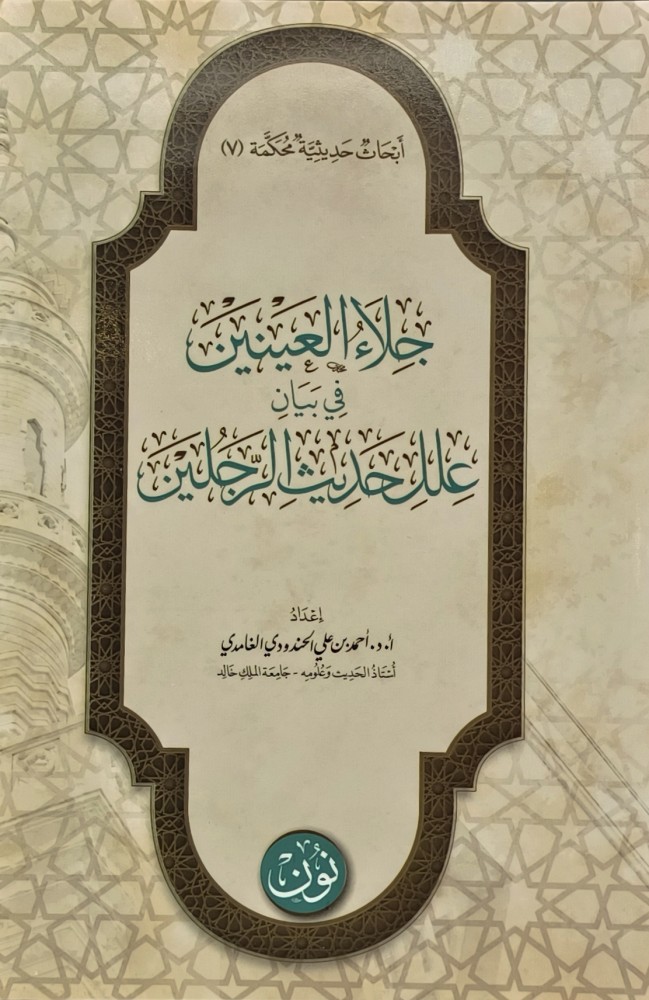 أَبْحَاثٌ حَدِيثِيَّةٌ مُحَكَّمَة (٧)
جِلَاءُ العَيْنَيْنِ
فِي بَيَانِ
عِلَلِ حَدِيثِ الرَّجُلَيْنِ
إِعْدَادُ
أ.د. أحمد بن علي الحندودي الغامدي
أُسْتَاذُ الحَدِيث وَعُلُومِه - جَامِعَة المَلِك خَالِد
نُون